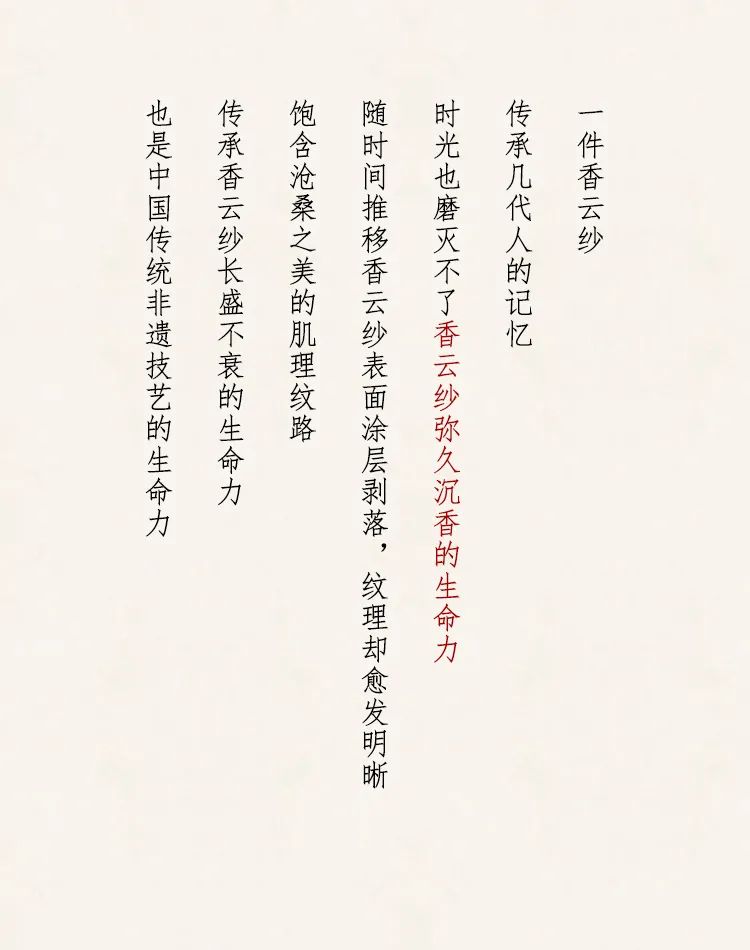 一件香云纱
传承几代人的记忆
时光也磨灭不了香云纱弥久沉香的生命力
随时间推移香云纱表面涂层剥落，纹理却愈发明晰
饱含沧桑之美的肌理纹路
传承香云纱长盛不衰的生命力
也是中国传统非遗技艺的生命力